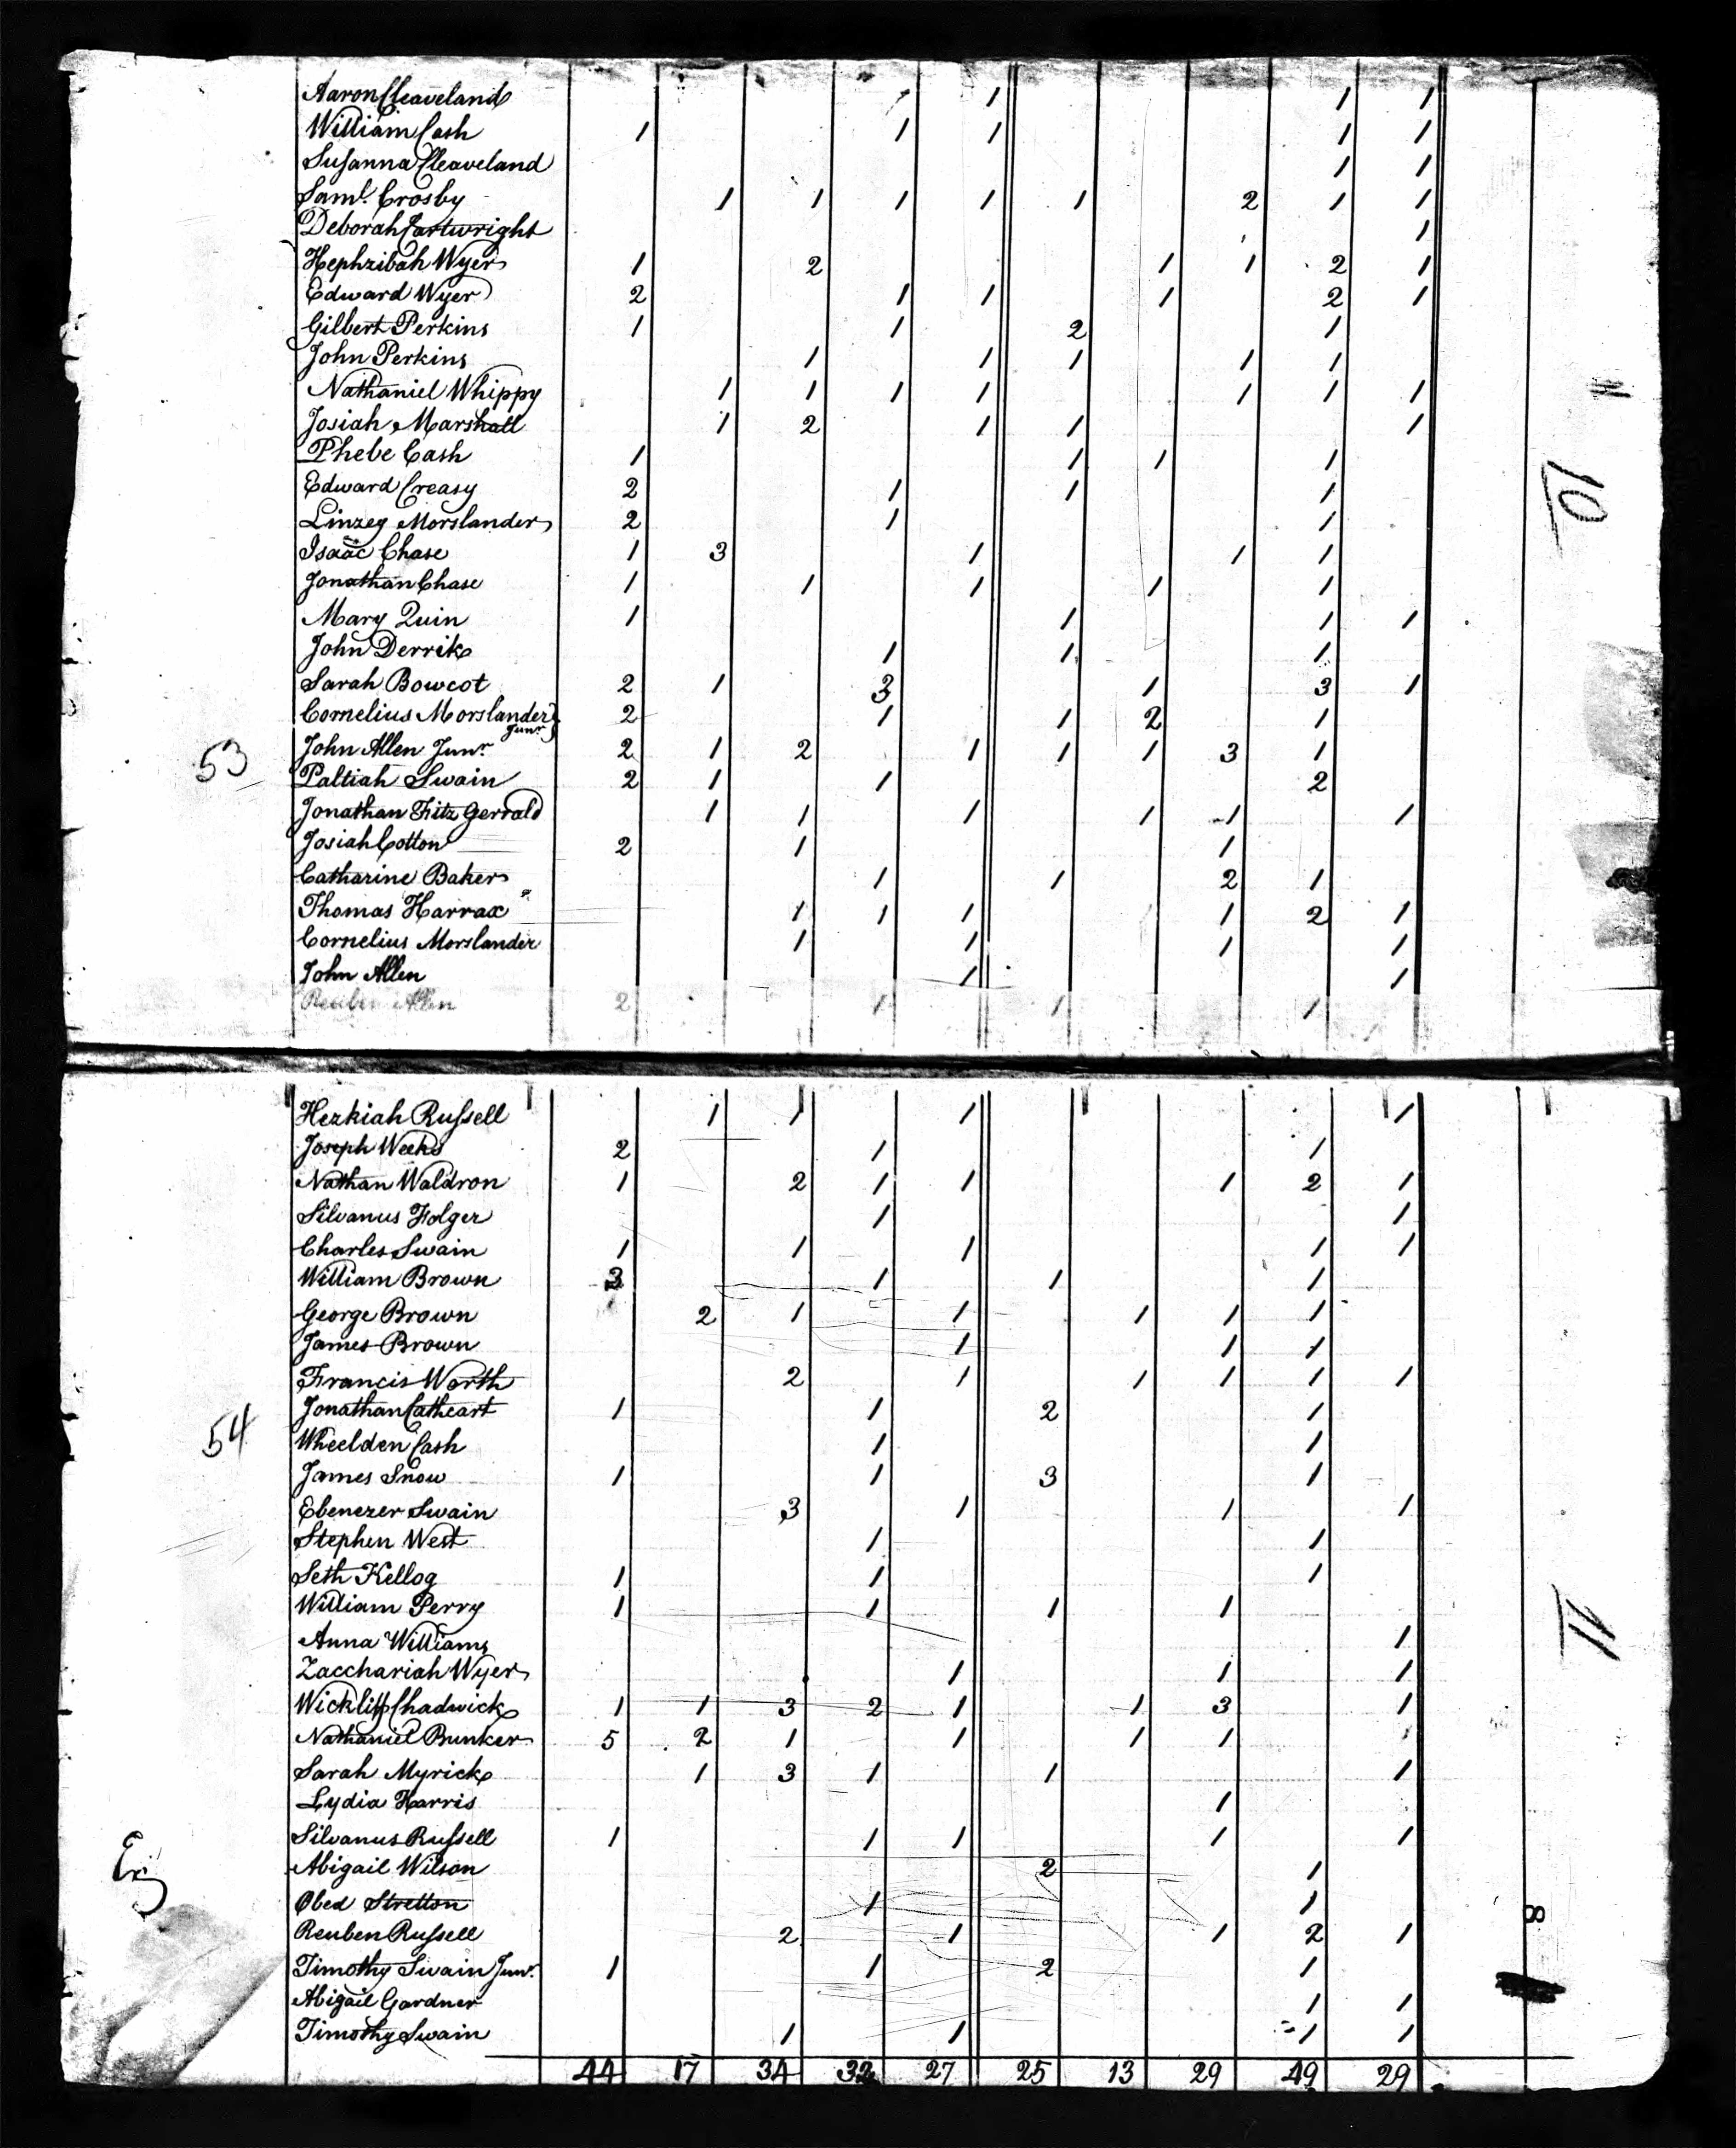 Aaron Cleaveland 1 1 1
William Cash 1 1 1 1 1
Susanna Cleaveland 1 1
Saml. Crosby 1 1 1 1 1 2 1 1
Deborah Cartwright 1
Hephzibah Wyer 1 2 1 1 2 1
Edward Wyer 2 1 1 1 2 1
Gilbert Perkins 1 1 2 1
John Perkins 1 1 1 1 1
Nathaniel Whippy 1 1 1 1 1 1 1
11
Josiah Marshall 1 2 1 1 1
Phebe Cash 1 1 1 1
Edward Creasy 2 1 1 1
10
Linzey Morslander 2 1 1
Isaac Chase 1 3 1 1 1
Jonathan Chase 1 1 1 1 1
Mary Quin 1 1 1 1
John Derrik 1 1 1
Sarah Bowcot 2 1 3 1 3 1
Cornelius Morslander Junr 2 1 1 2 1
53
John Allen Junr 2 1 2 1 1 1 3 1
Paltiah Swain 2 1 1 2
Jonathan Fitz Gerrald 1 1 1 1 1 1
Josiah Cotton 2 1 1
Catharine Baker 1 1 2 1
Thomas Harrax 1 1 1 1 2 1
Cornelius Morslander 1 1 1 1
John Allen 1 1
Reuben Allen 2 1 1 1
Hezkiah Russell 1 1 1 1
Joseph Weeks 2 1 1
Nathan Waldron 1 2 1 1 1 2 1
Silvanus Folger 1 1
Charles Swain 1 1 1 1 1
William Brown 3 1 1 1
George Brown 2 1 1 1 1 1
James Brown 1 1 1
Francis Worth 2 1 1 1 1 1
Jonathan Cathcart 1 1 2 1
54
Wheelden Cash 1 1
James Snow 1 1 3 1
Ebenezer Swain 3 1 1 1
Stephen West 1 1
Seth Kellog 1 1 1
William Perry 1 1 1 1
11
Anna Williams 1
Zacchariah Wyer 1 1 1
Wickliff Chadwick 1 1 3 2 1 1 3 1
Nathaniel Bunker 5 2 1 1 1 1
Sarah Myrick 1 3 1 1 1
Lydia Harris 1
Silvanus Russell 1 1 1 1 1
Abigail Wilson 2 1
Obed Stretton 1 1
8
Reuben Russell 2 1 1 2 1
Timothy Swain Junr. 1 1 2 1
Abigail Gardner 1 1
Timothy Swain 1 1 1 1
44 17 34 32 27 25 13 29 49 29